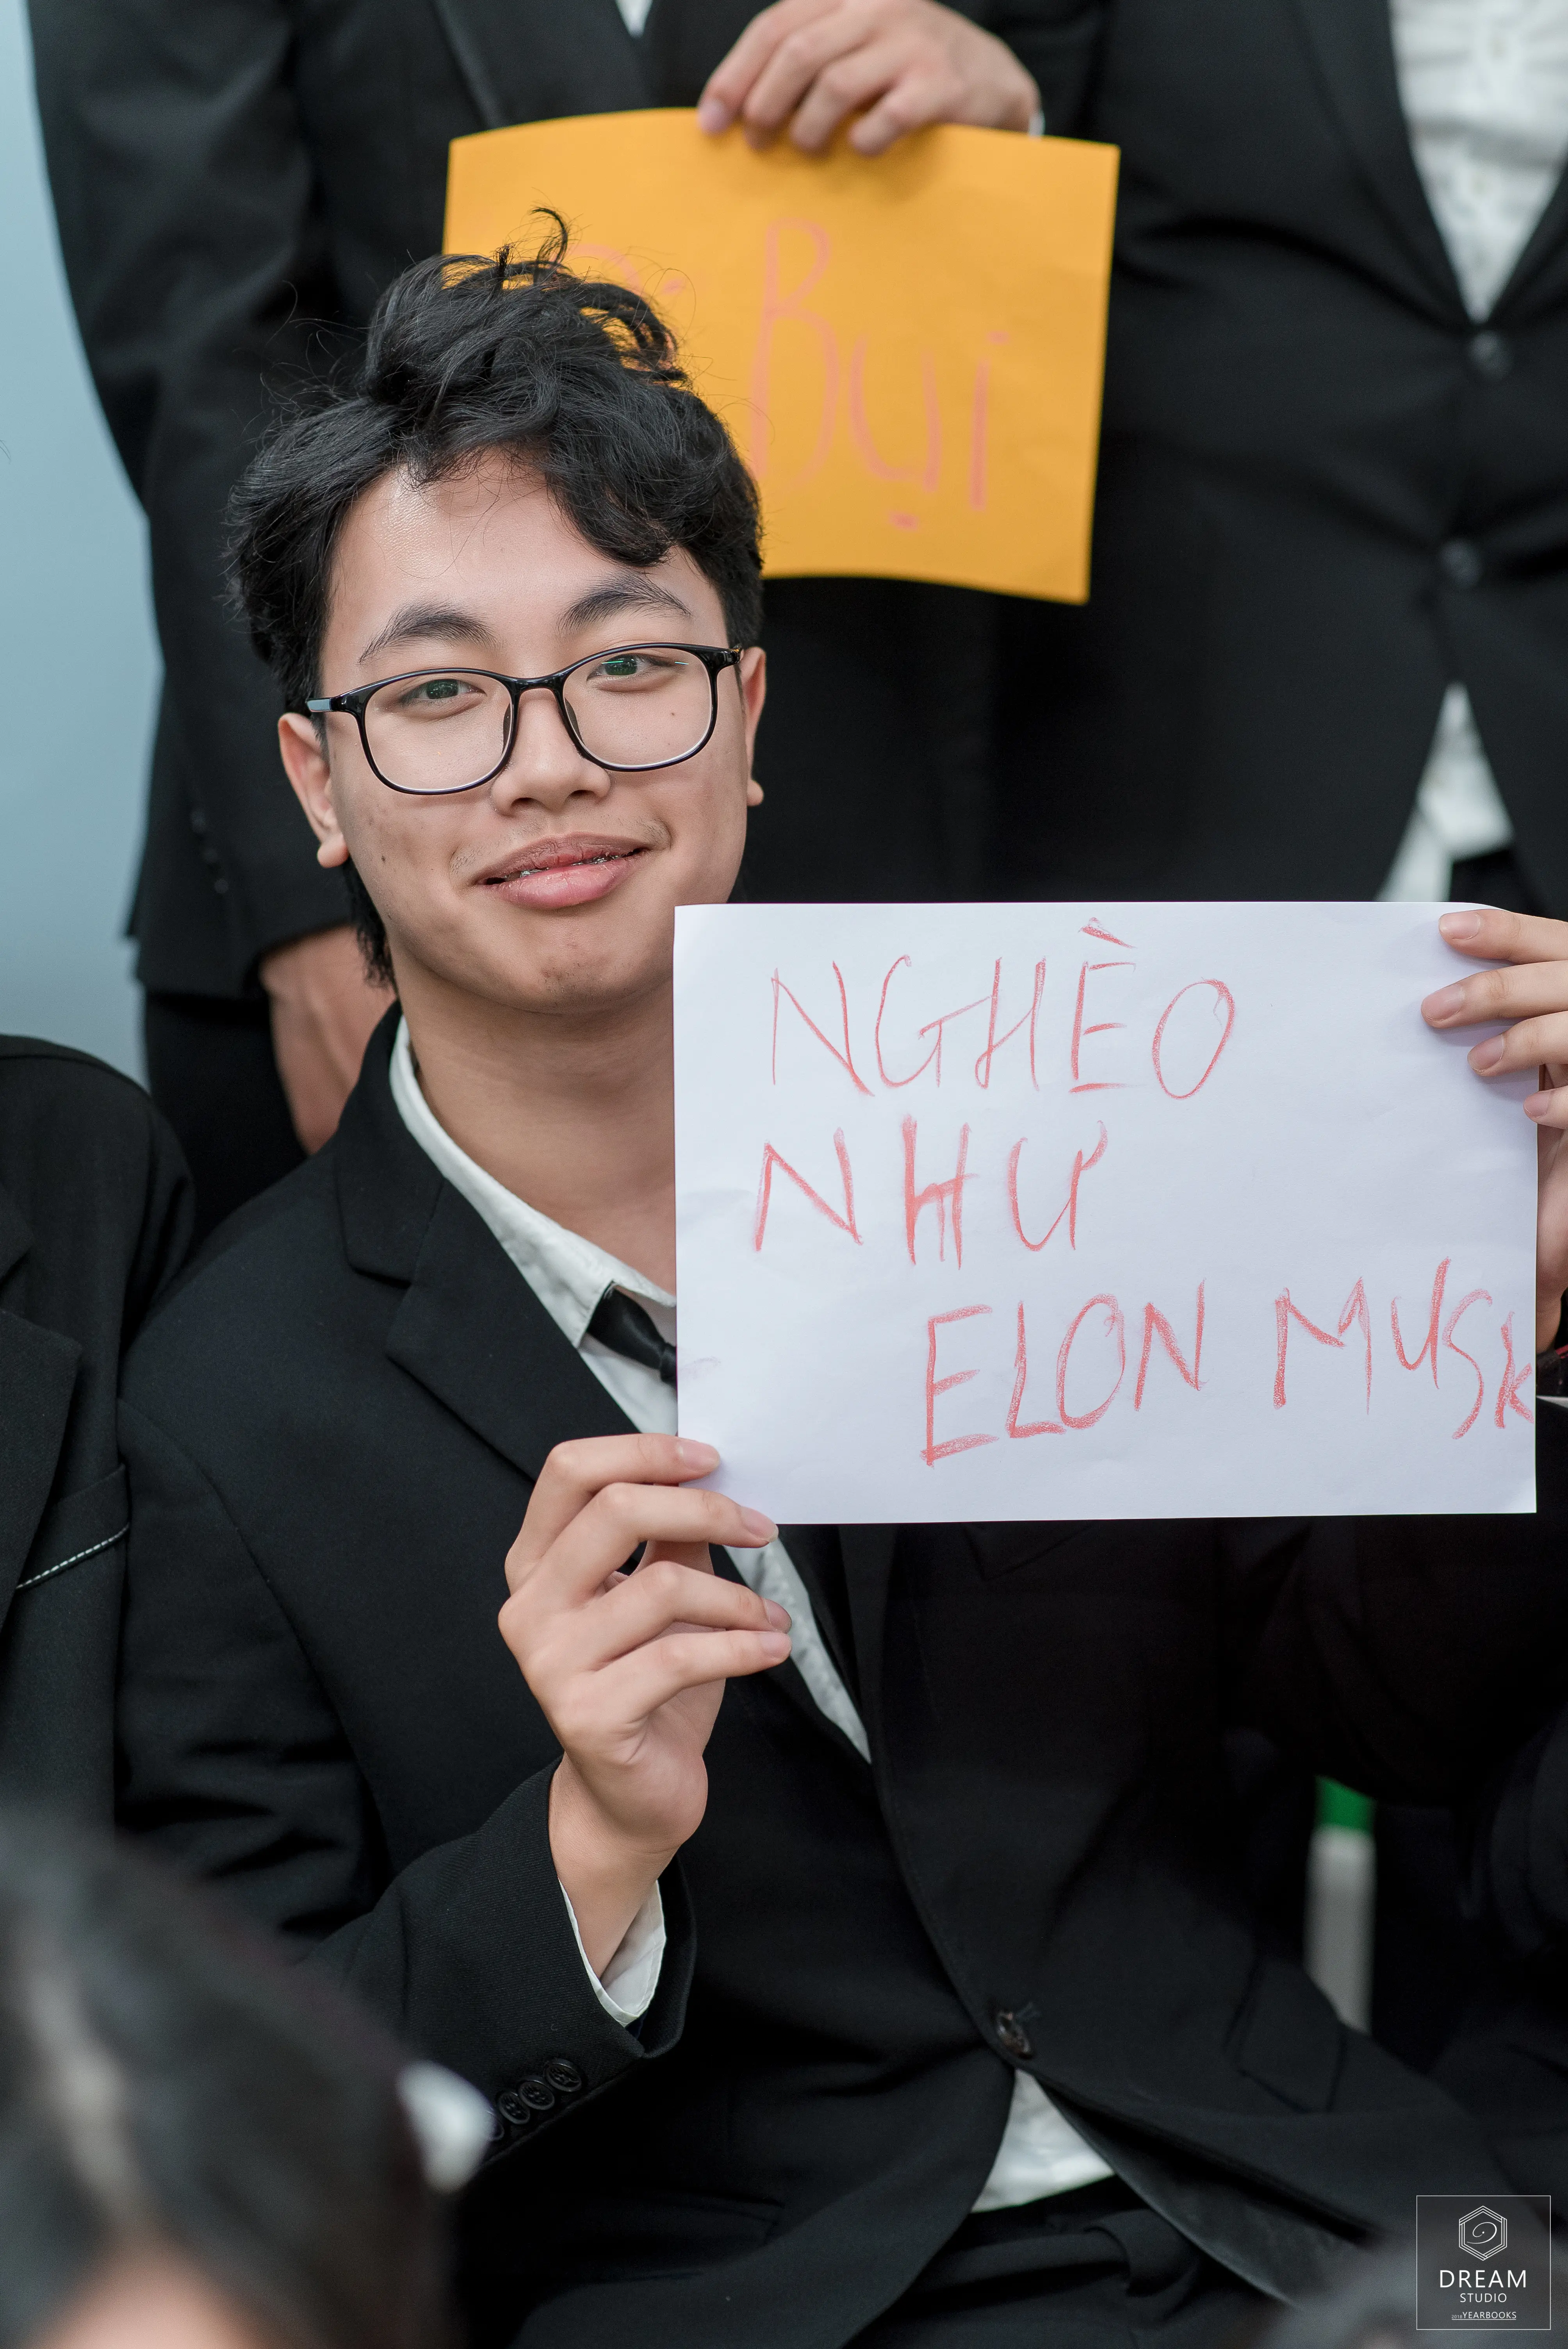 Bụi
NGHÈO
NHƯ
ELON MUSK
DREAM
STUDIO
YEARBOOKS